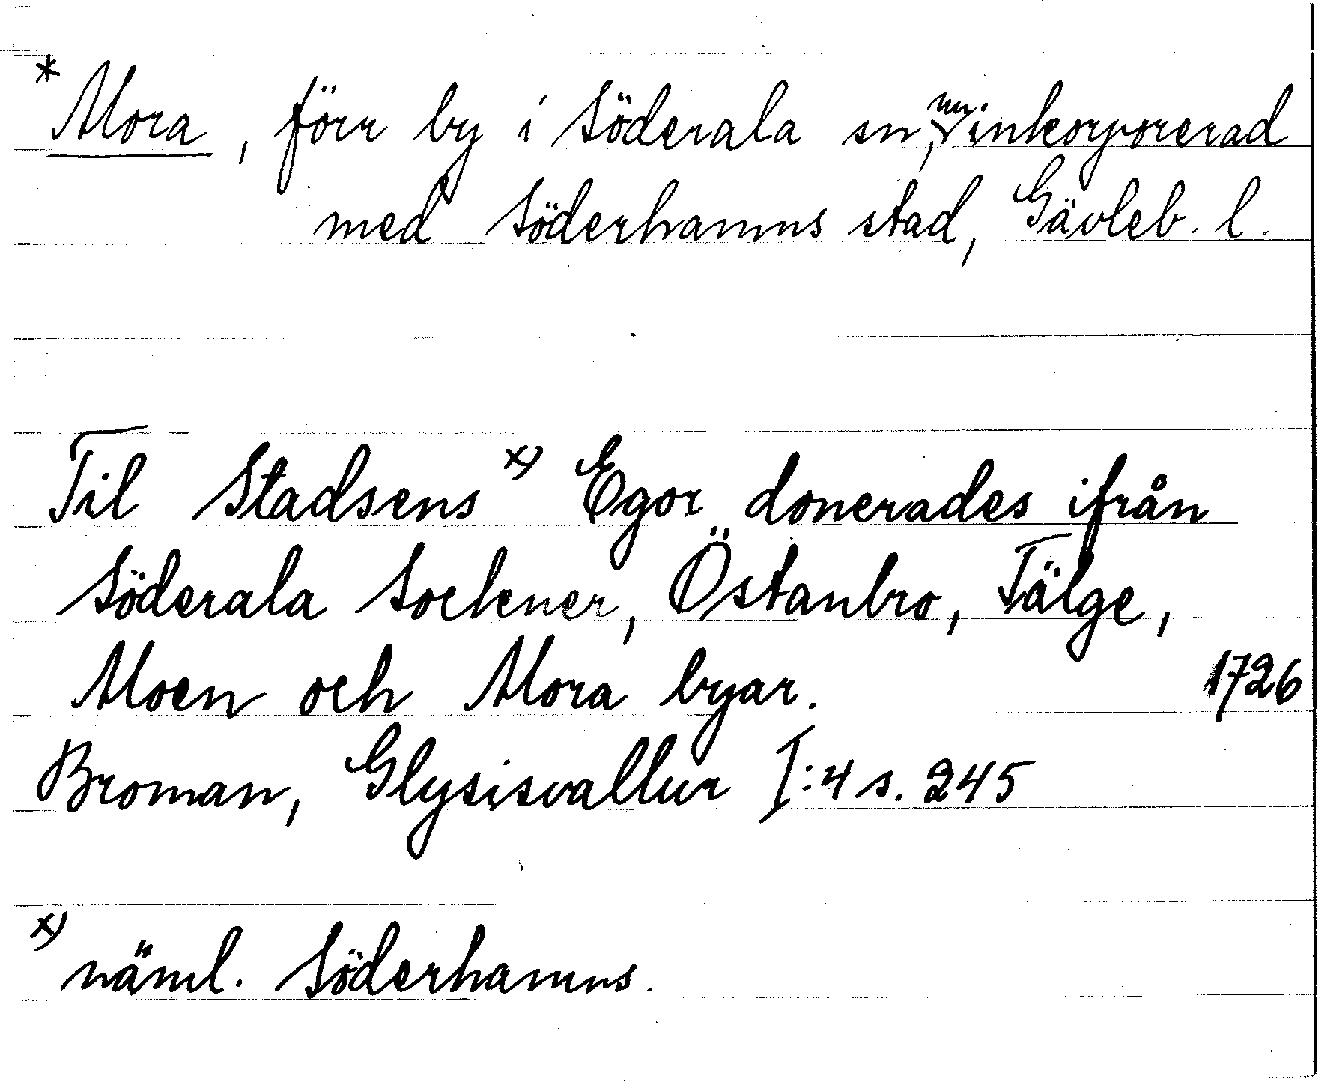 *Mora, förr by i Söderala sn, nu inkorporerad
med Söderhamns stad, Gävleb. l.
Til Stadsens x) Egor donerades ifrån
Söderala Sochner, Östanbro, Tälge,
Moen och Mora byar. 1726
Broman, Glysisvallur I:4 s. 245
x) näml. Söderhamns.